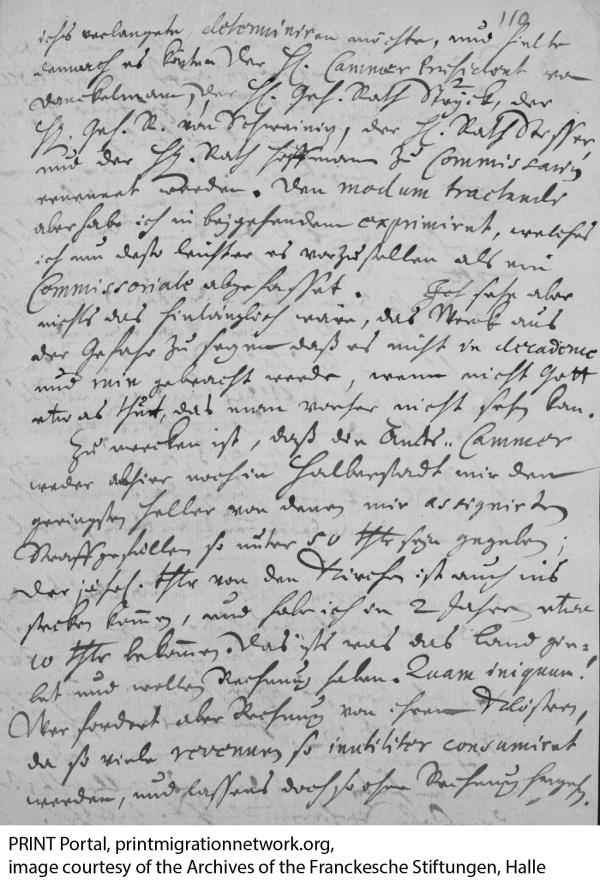 110
ichs verlangete, determiniren möchte, und hielte
dennoch es könten der H. Cammer Præsident von
Danckelmann, der H. Geh. Rath Stryck, der
H. Geh. R. von Schweinitz, der H. Rath Stösser
und der H. Rath Hoffmann zu Commissarien
ernennet werden. Den modum tractandi
aber habe ich in beygehendem exprimiret, welches
ich nur desto leichter es vorzustellen als ein
Commissoriale abgefasset. Ich sehe aber
nichts das hinlänglich wäre, das Werck aus
der Gefahr zu setzen daß es nicht in decadence
und ruin gebracht werde, wenn nicht Gott
etwas thut, das man vorher nicht sehen kan.
Zu mercken ist, daß die Ambts-Cammer
weder alhier noch in Halberstadt mir den
geringsten Heller von denen mir assignirten
Straffgefällen so unter 50 Thlr seyn gegeben;
der Thlr von den Kirchen ist auch ins
stecken kommen, und habe ich in 2 Jahren etwa
10 Thlr bekommen. Das ists was das Land gie-
bet und wollen Rechnung haben. Quam iniquum!
Wer fordert aber Rechnung von ihren Klöstern,
da so viele revenuen so inutiliter consumiret
werden, und lassens doch so ohne Rechnung hingehen.
PRINT Portal, printmigrationnetwork.org,
image courtesy of the Archives of the Franckesche Stiftungen, Halle